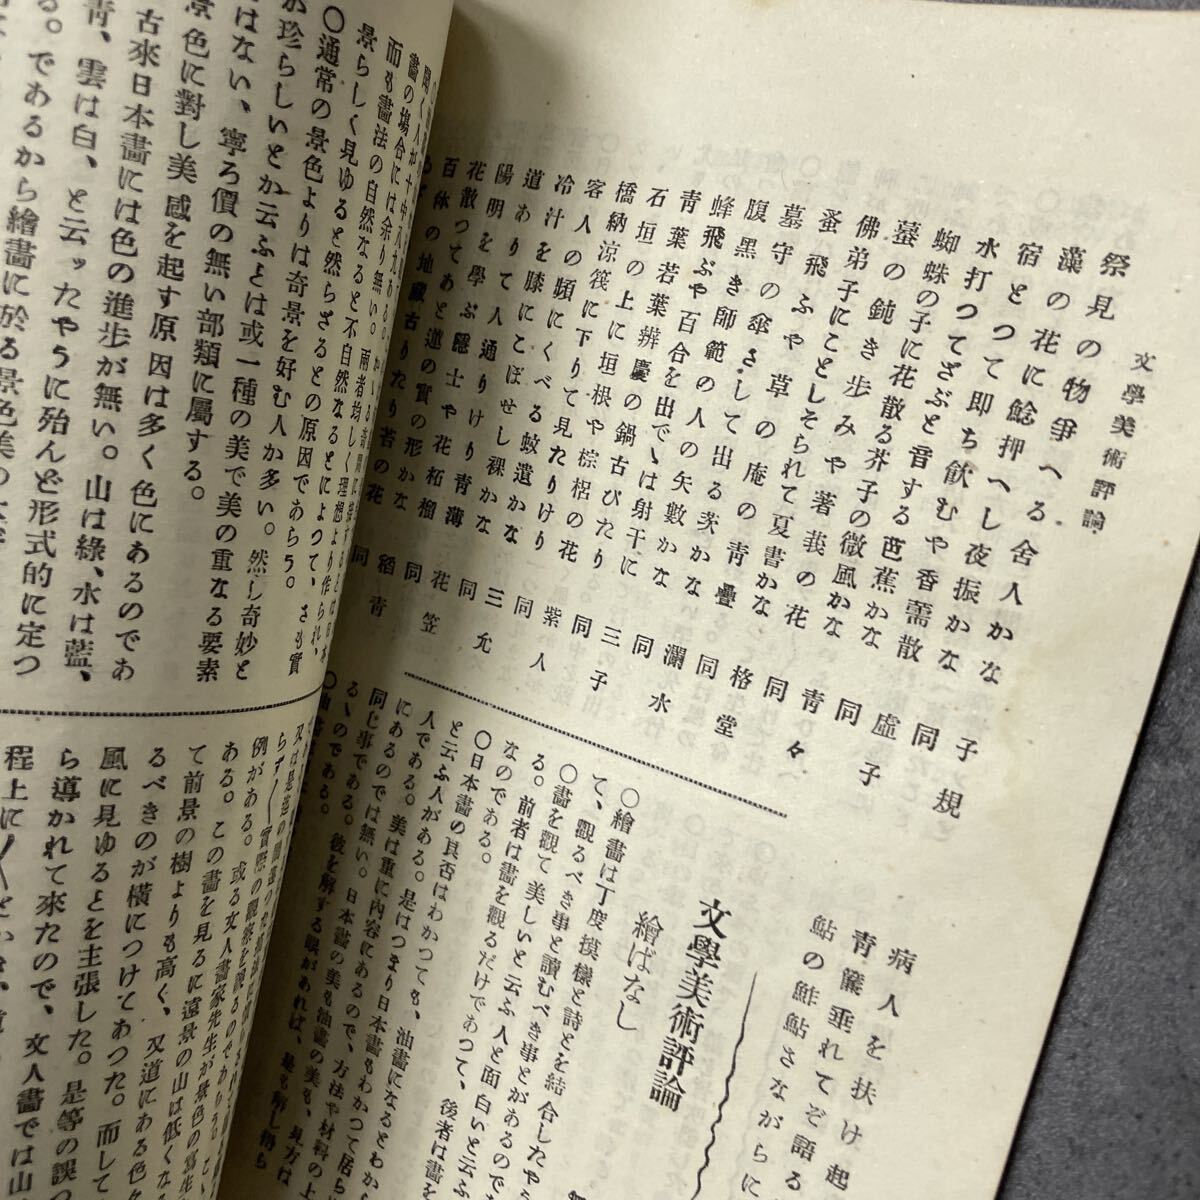 文學美術評論
祭見の物爭へる舍人かな 子規
藻の花に鯰押へし夜振かな 同
宿とつて即ち飮むや香薷散 虛子
水打つてざぶと音する芭蕉かな 同
蜘蛛の子に花散る芥子の微風かな 青々
蟇の鈍き歩みや著莪の花 同
佛弟子にことしそられて夏書かな 格堂
蚤飛ぶや草の庵の青疊 同
墓守の傘さして出る茨かな 瀾水
腹黑き師範の人の矢數かな 同
蜂飛ぶや百合を出でゝは射干に 三子
青葉若葉辨慶の鍋古びたり 同
石垣の上に垣根や棕梠の花 紫人
橋納涼筏に下りて見たりけり 同
客人の頰にくべる蚊遣かな 三允
冷汁を膝にこぼせし裸かな 同
道ありて人通りけり青薄 花笠
陽明を學ぶ隱士や花柘榴 同
花散つてあと蓮の實の形かな 稻青
百体の地藏古りたり苔の花 同
病人を扶け起
青簾垂れてぞ語る
鮎の鮓鮎さながらに
文學美術評論
繪ばなし
〇繪畵は丁度摸樣と詩とを結合したやう
て、觀るべき事と讀むべき事とがあるので
〇畵を觀て美しいと云ふ人と面白いと云ふ
る。前者は畵を觀るだけであつて、後者は畵を
なのである。
〇日本畵の具否はわかつても、油畵になるとわから
と云ふ人がある。是はつまり日本畵もわかつて居ら
人である。美は重に內容にあるので、方法や材料の上
にあるのでは無い。日本畵の美も油畵の美も、見方は
同じ事である。彼を解する眼があれば、是も解し得ら
るゝのである。
畵の場合には余り無い。
而も畵法の自然なると不自然なるとによつて、さも實
景らしく見ゆると然らざるとの原因であらう。
〇通常の景色よりは奇景を好む人か多い。然し奇妙と
か珍らしいとか云ふとは或一種の美で美の重なる要素
ではない、寧ろ價の無い部類に屬する。
景色に對し美感を起す原因は多く色にあるのであ
古來日本畵には色の進歩が無い。山は綠、水は藍、
靑、雲は白、と云ッたやうに殆んど形式的に定つ
る。であるから繪畵に於る景色美の
例がある。或る文人畵家先生が景色の寫生
ある。この畵を見るに遠景の山は低くなる
て前景の樹よりも高く、又道にある色々
るべきのが橫につけてあつた。而して
風に見ゆるとを主張した。是等の誤つ
ら導かれて來たので、文人畵では山